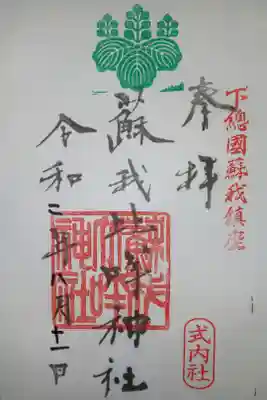 下總國蘇我鎮座
奉拝
蘇我比咩神社
令和二年八月十一日
式内社
蘇我比咩神社